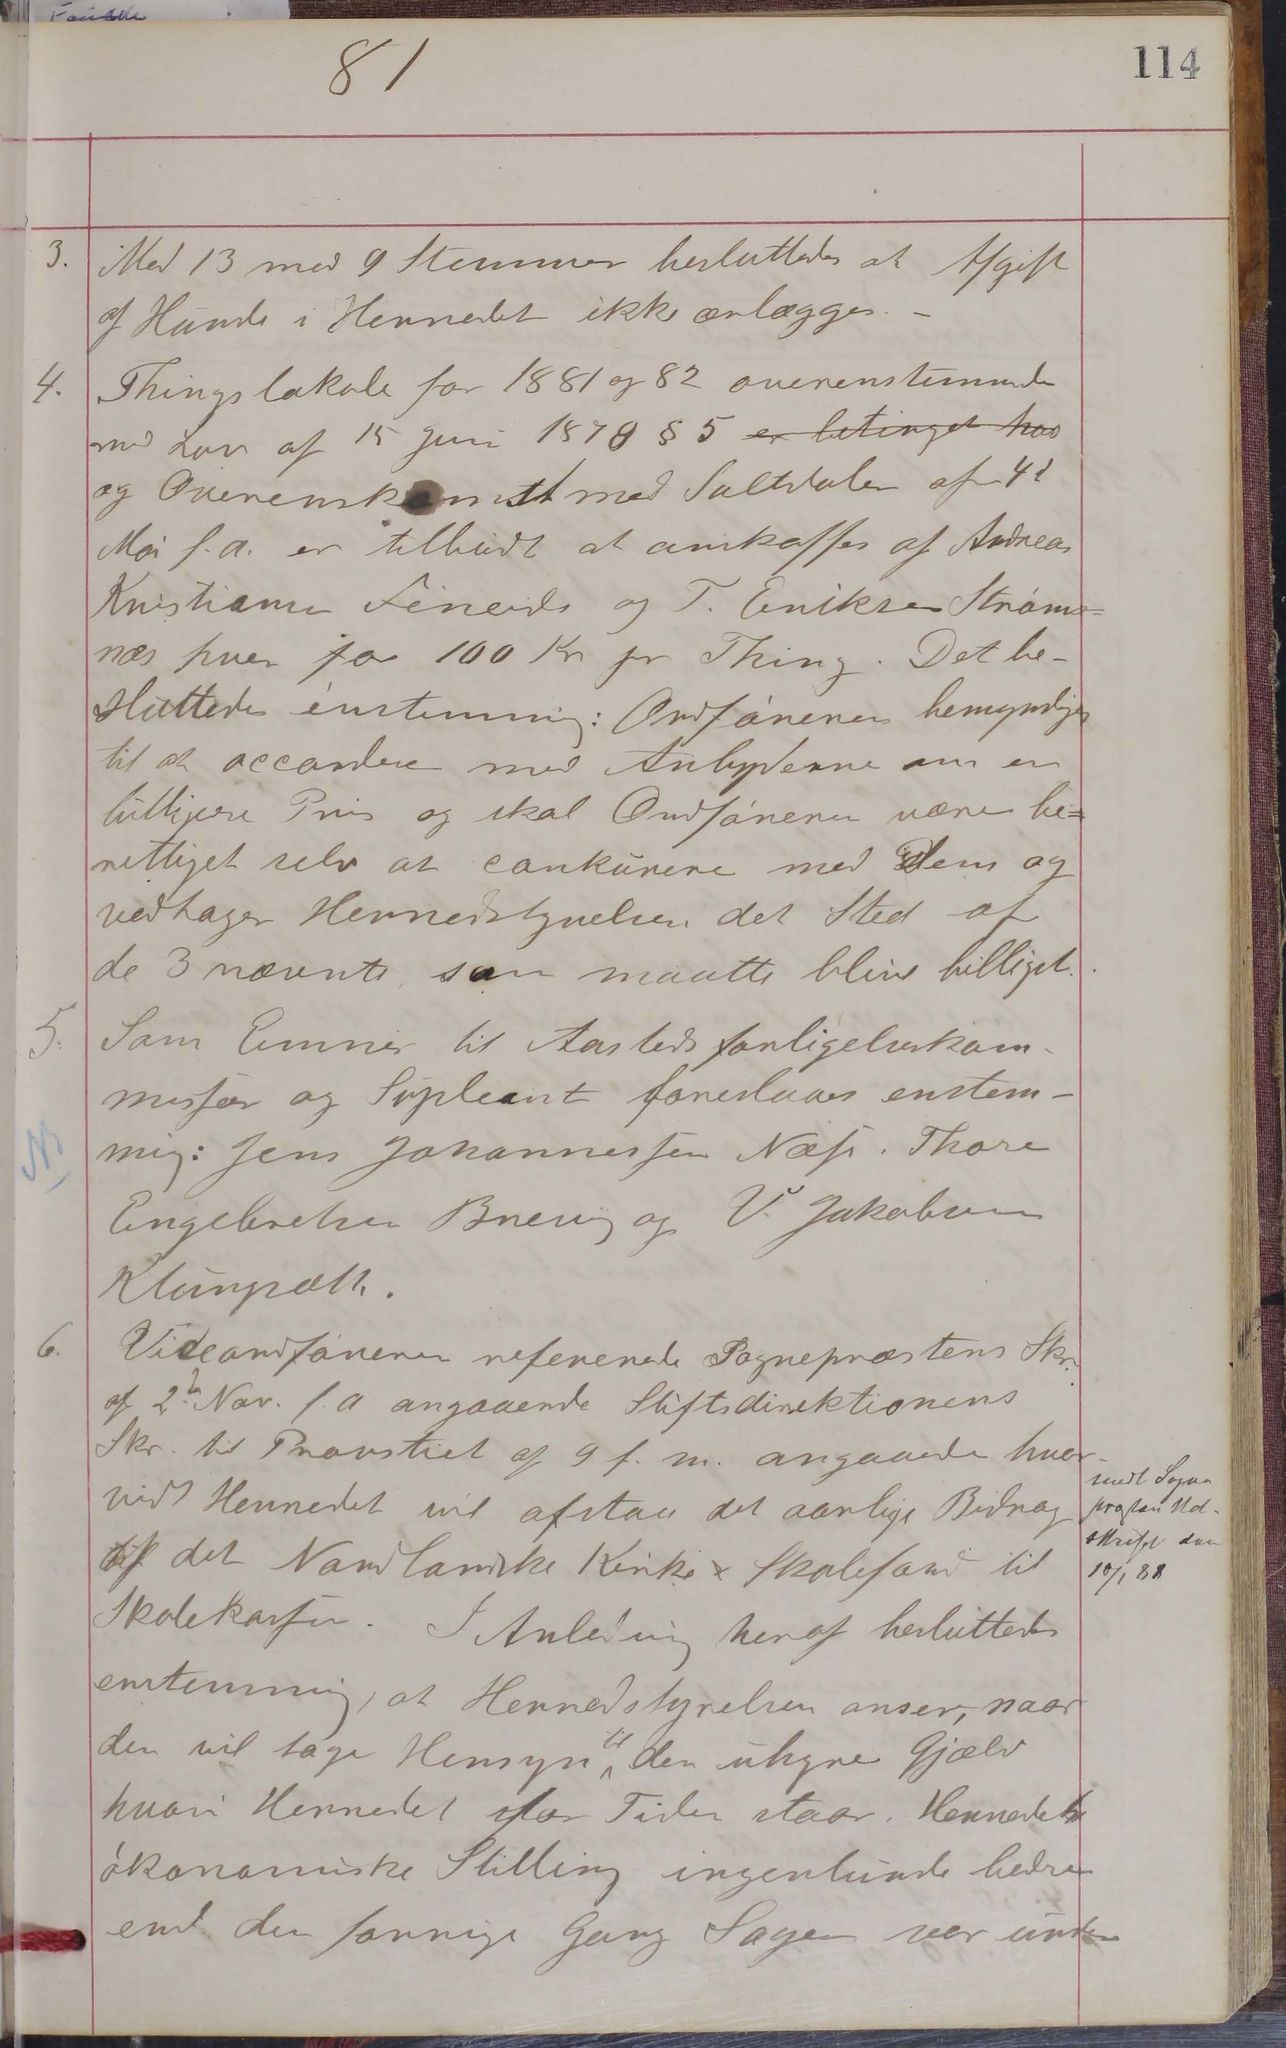 81
114
3. Med 13 mod 9 Stemmer besluttedes at Afgift
af Hunde i Herredet ikke anlægges. –
4. Thingslokale for 1881 og 82 overenstemmende
med Lov af 15 Juni 1878 § 5 er betinget hos
og Overenskomst med Saltdalen af 4d
Mai f.a. er tilbudt at anskaffes af Andreas
Kristiansen Fineide og T. Eriksen Strøms=
næs hver for 100 Kr pr Thing. Det be-
sluttedes enstemmig: Ordføreren bemyndiges
til at accordere med Anbyderne om en
billigere Pris og skal Ordføreren være be=
rettiget selv at conkurere med Dem og
vedtager Herredstyrelsen det Sted af
de 3 nævnte som maatte blive billigst.
5. Som Emner til Aastedsforligelseskom-
missær og Supleant foreslaaes enstem-
mig: Jens Johannessen Næss. Thore
Engebretsen Brevig og V. Jakobsen
Klungsæth.
6. Viceordføreren refererede Sognepræstens Skr.
af 2den Nov. f.a angaaende Stiftsdirektionens
Skr. til Provstiet af 9 f. m. angaaende hvor-
vidt Herredet vil afstaa det aarlige Bidrag
af det Nordlandske Kirke & Skolefond til
Skolekassen. I Anledning heraf besluttedes
enstemmig, at Herredstyrelsen anser, naar
den vil tage Hensyn til den uhyre Gjæld
hvori Herredet for Tiden staar. Herredets
økonomiske Stilling ingenlunde bedre
end den forrige Gang Sagen var under
sendt Sogne
præsten Ud-
skrift den
10/1 88